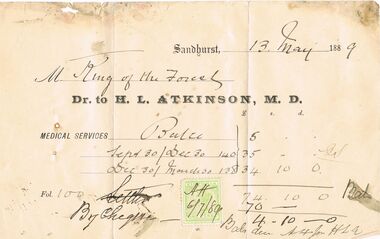 Sandhurst, 13 May 1889
M King of the Forest
Dr. to H. L. ATKINSON, M. D.
£ s. d.
MEDICAL SERVICES 6
Sept 30/Dec 30 140 35 - -
Dec 30/March 30 138 34 10 0
Fol. 100 Settled 74 10 0
70 - -
By Cheque AH 6/7/89 4 - 10 - 0
Bal due 4 HLA